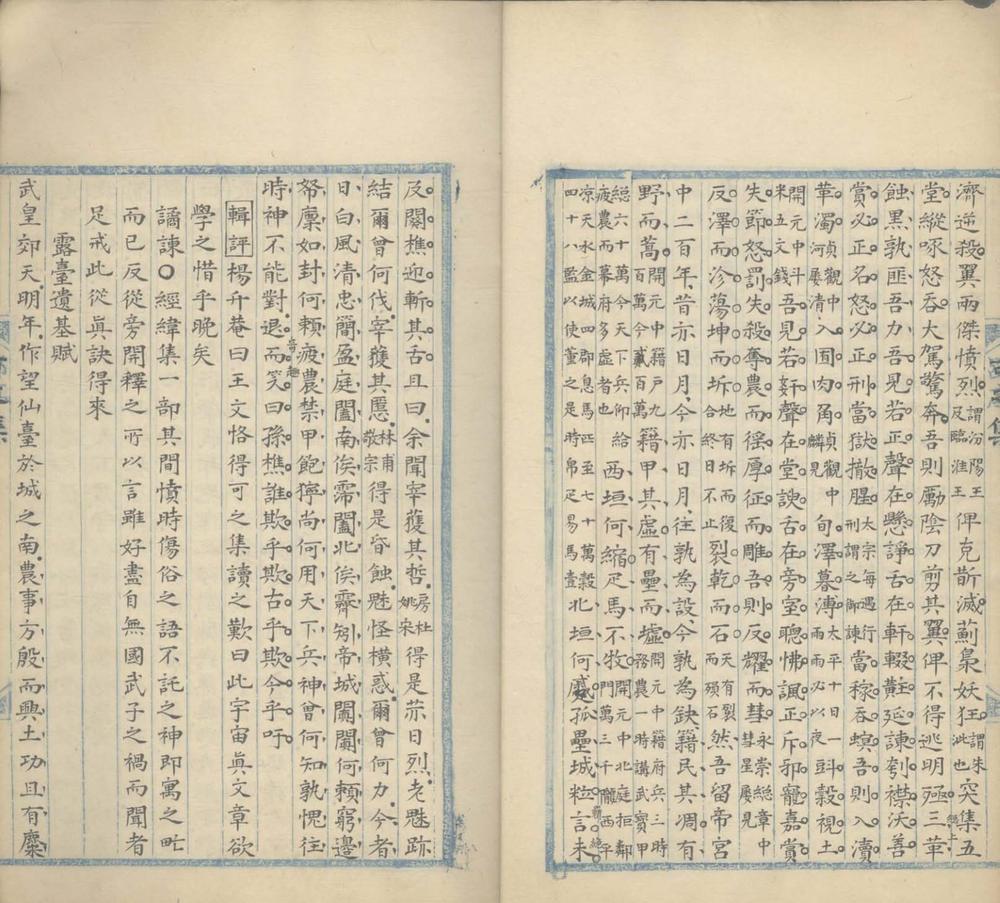 濟逆殺翼兩傑憤烈謂汾陽王及臨淮王俾克斮滅薊梟妖狂謂朱泚也突集五
堂縱啄怒吞大駕驚奔吾則勵陰刀剪其翼俾不得逃明殛三革
蝕黑孰匪吾力吾見若正聲在懸諍舌在軒輟黈延諫刳襟沃善
賞必正名怒必正刑當獄撤腥太宗每遇行刑謂之御諫當稼吞螟吾則入瀆
華濁貞觀中河屢清入囿肉角貞觀中麟見旬澤暮溥太平十日一雨雨必以夜㪷穀視土
開元中斗米五文錢吾見若奸聲在堂諛舌在旁窒聰怫諷正斥邪寵嘉賞
失節怒罰失殺奪農而徭厚征而雕吾則反耀而彗永崇總章中彗星屢見
反澤而沴蕩坤而坼地有坼而復合終日不止裂乾而石天有裂而殞石然吾留帝宮
中二百年昔亦日月今亦日月往孰為設今孰為缺籍民其凋有
野而蒿開元中籍戶九百萬今貳百萬籍甲其虛有壘而墟開元中籍府兵三時務農一時講武實甲
總六十萬今天下兵仰給疲農而幕府多虛者也西垣何縮疋馬不牧開元中北庭拒鄰門萬三千隴西平
涼天水金城四郡息馬匹至七十萬穀四十八監以使董之是時帛疋易馬壹北垣何蹙孤壘城粒言未
及闋樵迎斬其舌且曰余聞宰獲其哲房杜姚宋得是亦日烈老魅跡
結爾曾何伐宰獲其慝林甫敬宗得是昏蝕魅怪橫惑爾曾何力今者
日白風清忠簡盈庭闔南俟霈闔北俟霽矧帝城闤闠何賴窮邊
帑廩如封何賴疲農禁甲飽獰尚何用天下兵神曾何知孰愧往
時神不能對退而笑曰孫樵誰欺乎欺古乎欺今乎吁
輯評楊升菴曰王文恪得可之集讀之歎曰此宇宙真文章欲
學之惜乎晚矣
譎諫〇經緯集一部其間憤時傷俗之語不託之神即寓之甿
而已反從旁開釋之所以言雖好盡自無國武子之禍而聞者
足戒此從真訣得來
露臺遺基賦
武皇郊天明年作望仙臺於城之南農事方殷而興土功且有糜